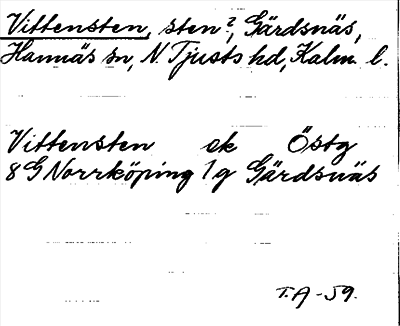 Vittensten, sten?, Gärdsnäs,
Hannäs sn, N. Tjusts hd, Kalm. l.
Vittensten ek Östg
8G Norrköping 1g Gärdsnäs
T.A -59.